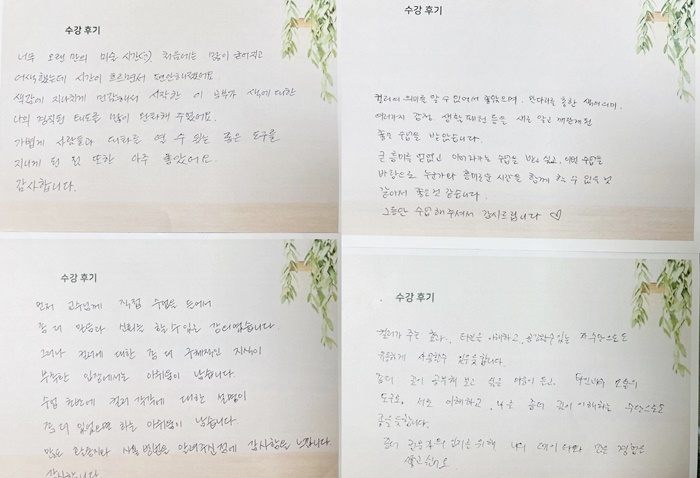 수강 후기
너무 오랜 만의 미술 시간(:) 처음에는 많이 굳어지고
어색했는데 시간이 흐르면서 편안해졌어요
색감에 지나치게 민감해서 시작한 이 공부가 색에 대한
나의 경직된 태도를 많이 완화해 주었어요.
가볍게 사람들과 대화를 열 수 있는 좋은 도구를
지니게 된 것 또한 아주 좋았어요.
감사합니다.
수강 후기
컬러의 의미를 알 수 있어서 좋았으며, 만다라를 통한 색의 의미,
여러가지 감정, 생활 패턴 등을 새로 알고 깨닫게 된
좋은 수업을 받았습니다.
큰 흥미를 얻었고 이어지는 수업을 받고 싶고, 이번 수업을
바탕으로 누군가와 흥미로운 시간을 함께 할 수 있을 것
같아서 좋은 것 같습니다.
그동안 수업해 주셔서 감사드립니다 ♡
수강 후기
먼저 교수님께 직접 수업을 들어서
좀 더 만족과 신뢰를 할 수 있는 강의였습니다.
그러나 컬러에 대한 좀 더 구체적인 지식이
부족한 입장에서는 아쉬움이 남습니다.
수업 초반에 컬러 각각에 대한 설명이
좀 더 있었으면 하는 아쉬움이 남습니다.
많은 사용 방법을 알려주신 점에 감사함을 느낍니다
감사합니다.
수강 후기
컬러가 주는 효과, 타인을 이해하고, 공감할수있는 수단으로도
유용하게 사용할수 있을듯합니다.
좀더 깊이 공부해 보고 싶은 마음이 든고, 타인과의 소통의
도구로, 서로 이해하고, 나를 좀더 깊이 이해하는 수단으로도
좋을듯합니다.
좀더 나의 많은 경험을
쌓고 싶어요.